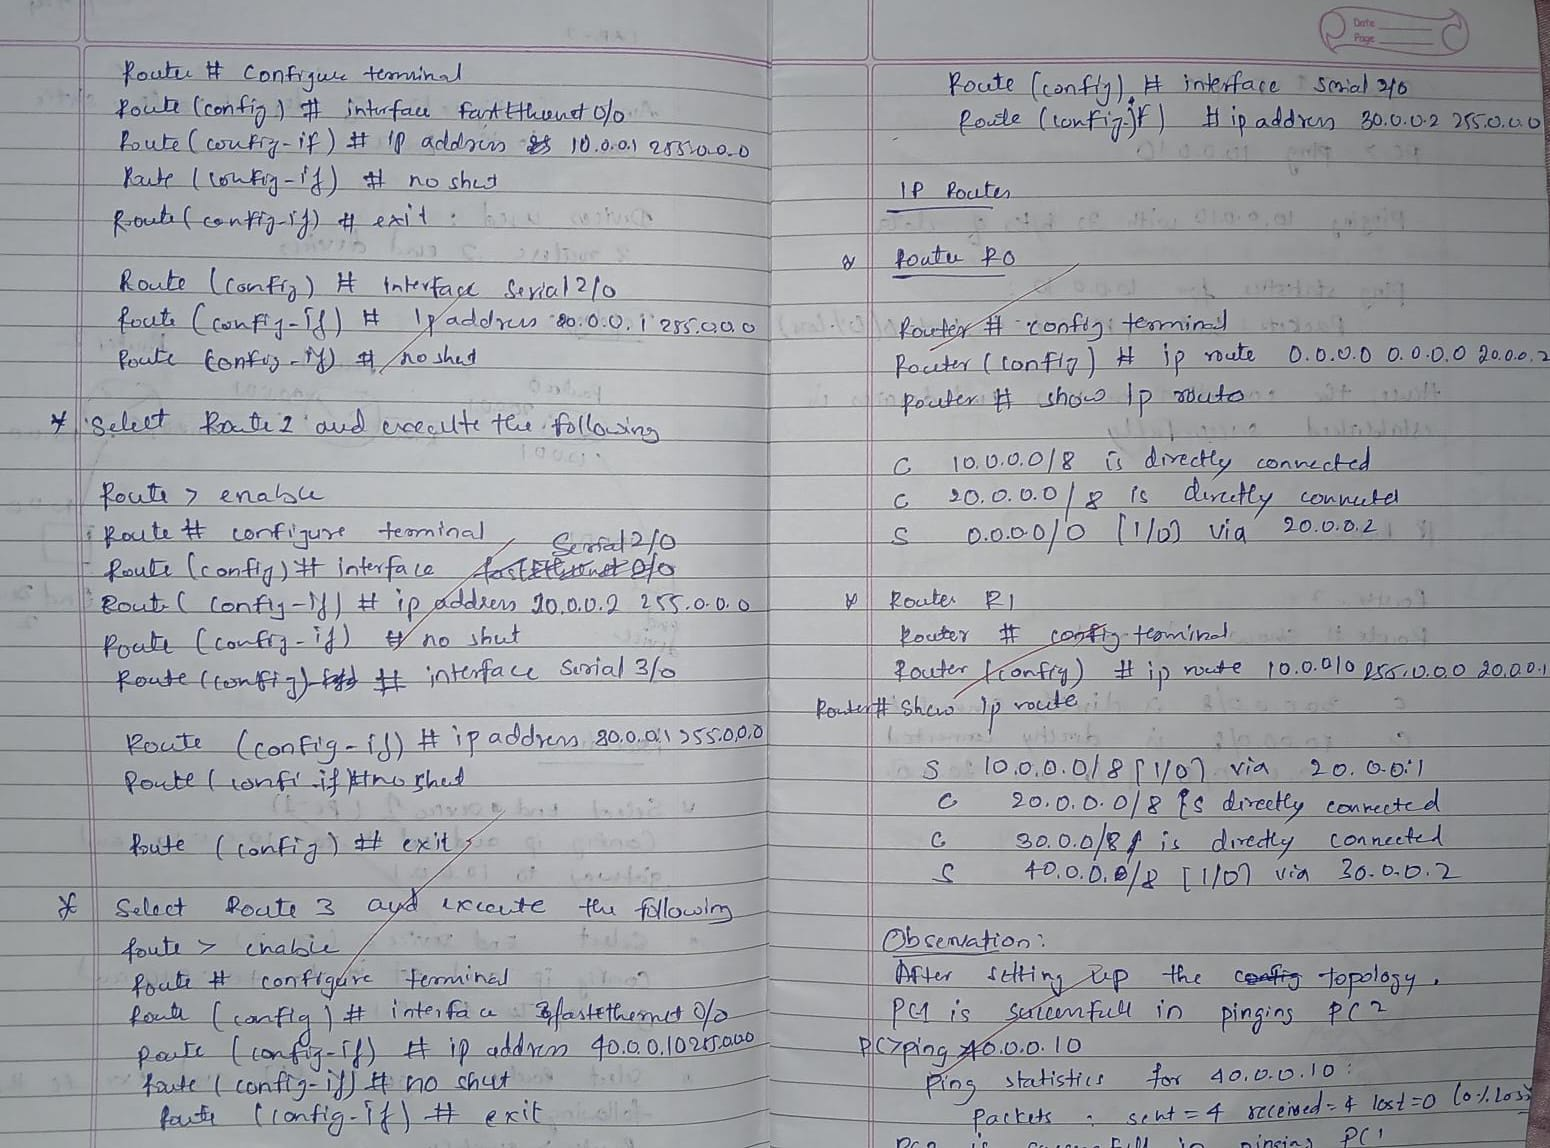 Router # configure terminal
Route (config) # interface fastEthernet 0/0
Route (config-if) # ip address 10.0.0.1 255.0.0.0
Route (config-if) # no shut
Route (config-if) # exit
Route (config) # interface serial 2/0
Route (config-if) # Ip address 20.0.0.1 255.0.0.0
Route (config-if) # no shut
* Select Route 2 and execute the following
Route > enable
Route # configure terminal
Serial 2/0
Route (config) # interface fastEthernet 0/0
Route (config-if) # ip address 20.0.0.2 255.0.0.0
Route (config-if) # no shut
Route (config) # interface serial 3/0
Route (config-if) # ip address 30.0.0.1 255.0.0.0
Route (confi-if) # no shut
Route (config) # exit
* Select Route 3 and execute the following
Route > enable
Route # configure terminal
Route (config) # interface fastethernet 0/0
Route (config-if) # ip address 40.0.0.10 255.0.0.0
Route (config-if) # no shut
Route (config-if) # exit
Date
Page
Route (config) # interface serial 2/0
Route (config-if) # ip address 30.0.0.2 255.0.0.0
IP Routes
Router R0
Router # config terminal
Router (config) # ip route 0.0.0.0 0.0.0.0 20.0.0.2
Router # show Ip route
C 10.0.0.0/8 is directly connected
C 20.0.0.0/8 is directly connected
S 0.0.0.0/0 [1/0] via 20.0.0.2
Router R1
Router # config terminal
Router (config) # ip route 10.0.0/0 255.0.0.0 20.0.0.1
Router # show Ip route
S 10.0.0.0/8 [1/0] via 20.0.0.1
C 20.0.0.0/8 is directly connected
C 30.0.0/8 is directly connected
S 40.0.0.0/8 [1/0] via 30.0.0.2
Observation:
After setting up the config topology,
PC1 is successfull in pinging PC2
PC>ping 40.0.0.10
Ping statistics for 40.0.0.10:
Packets : sent = 4 received = 4 lost = 0 (0% loss)
pinging PC1